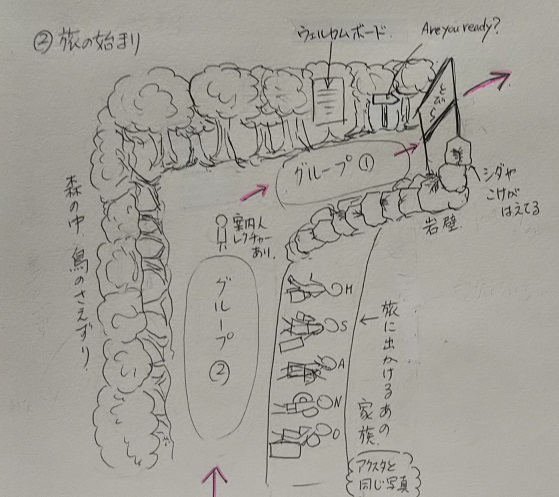 ② 旅の始まり
ウェルカムボード
Are you ready?
とびら
グループ①
シダや
こけが
はえてる
岩壁
森の中 鳥のさえずり
案内人
レクチャー
あり。
グループ②
H
S
A
N
O
旅に出かけるあの
家族
アクスタと
同じ写真